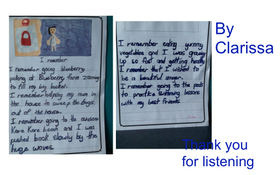 I remember
I remember going blueberry
picking at Blueberry farm
to fill my big bucket.
I remember helping my mum in
the house to sweep the
out of the house.
I remember going to the awesome
Kare Kare beach and I was
pushed back slowly by the
huge waves.
I remember eating yummy
vegetables and I was growing
up so fast and getting healthy
I remember that I wished to
be a beautiful singer.
I remember going to the pools
to practice swimming lessons
with my best friends.
By
Clarissa
Thank you
for listening